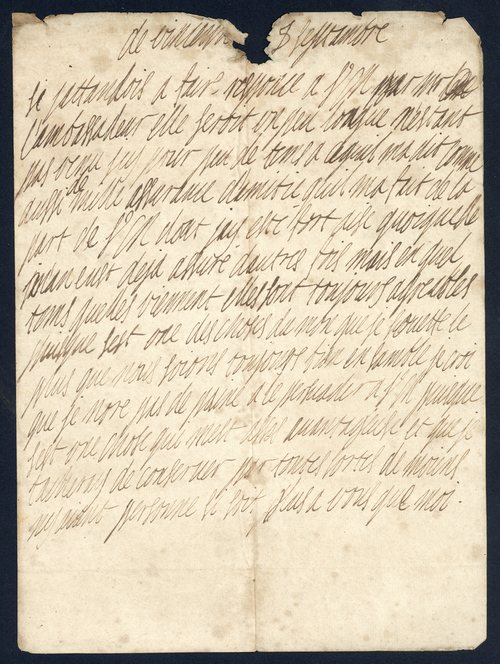 de vincenne 8 septambre
si jattandois a faire response a V M par mr
l'ambassadeur elle seroit un peu longue nestant
pas venu isy pour peu de tems a aquil ma dit comme
aussi de mille assurance damitie quil ma fait de la
part de V M dont jai este fort aise quoique je
men eust deja assuré dautres fois mais en quel
tems quelles viennent elles sont toujours agreables
puisque sest une des choses du monde que je souette le
plus que nous soions toujours bien en samble je croi
que je nore pas de paine a le persuader a V M puisque
sest une chose qui mest assés avantageuse et que je
tacherai de conserver par toutes sortes de moiens
ny aiant personne qui soit plus a vous que moi.